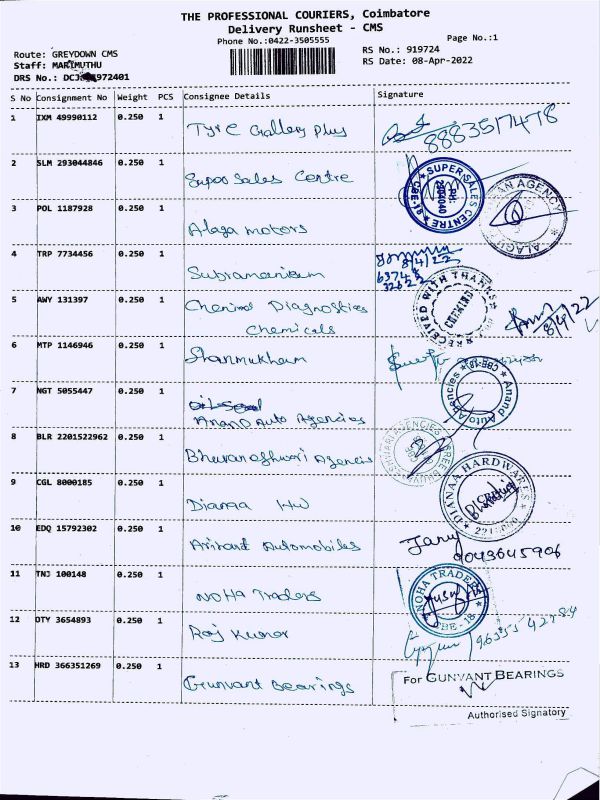 THE PROFESSIONAL COURIERS, Coimbatore
Delivery Runsheet - CMS
Phone No.:0422-3505555
Page No.:1
Route: GREYDOWN CMS
Staff: MARIMUTHU
RS No.: 919724
RS Date: 08-Apr-2022
972401
DRS No.:
S No Consignment No Weight PCS Consignee Details Signature
1 IXM 49990112 0.250 1 Tyre Gallery Plus 8883517478
2 SLM 293044846 0.250 1 Super Sales Centre
SUPER SALES CENTRE
3 POL 1187928 0.250 1 Alaga motors
AGENCY
4 TRP 7734456 0.250 1 Subramanium
8/4/22
5 AWY 131397 0.250 1 Chemind Diagnostics
Chemicals
RECEIVED WITH THANKS
CHEMIND
8/4/22
6 MTP 1146946 0.250 1 Shanmukham
7 NGT 5055447 0.250 1
Anand Auto Agencies
Anand Auto Agencies
8 BLR 2201522962 0.250 1 Bhuvaneshwari Agencies
9 CGL 8000185 0.250 1 Dianaa HW
DIANAA HARDWARES
10 EDQ 15792302 0.250 1 Arihant Automobiles
9043645906
11 TNJ 100148 0.250 1 NOHA Traders
NOHA TRADERS
CBE-18
12 OTY 3654893 0.250 1 Raj Kumar
13 HRD 366351269 0.250 1 Gunvant Bearings
For GUNVANT BEARINGS
Authorised Signatory